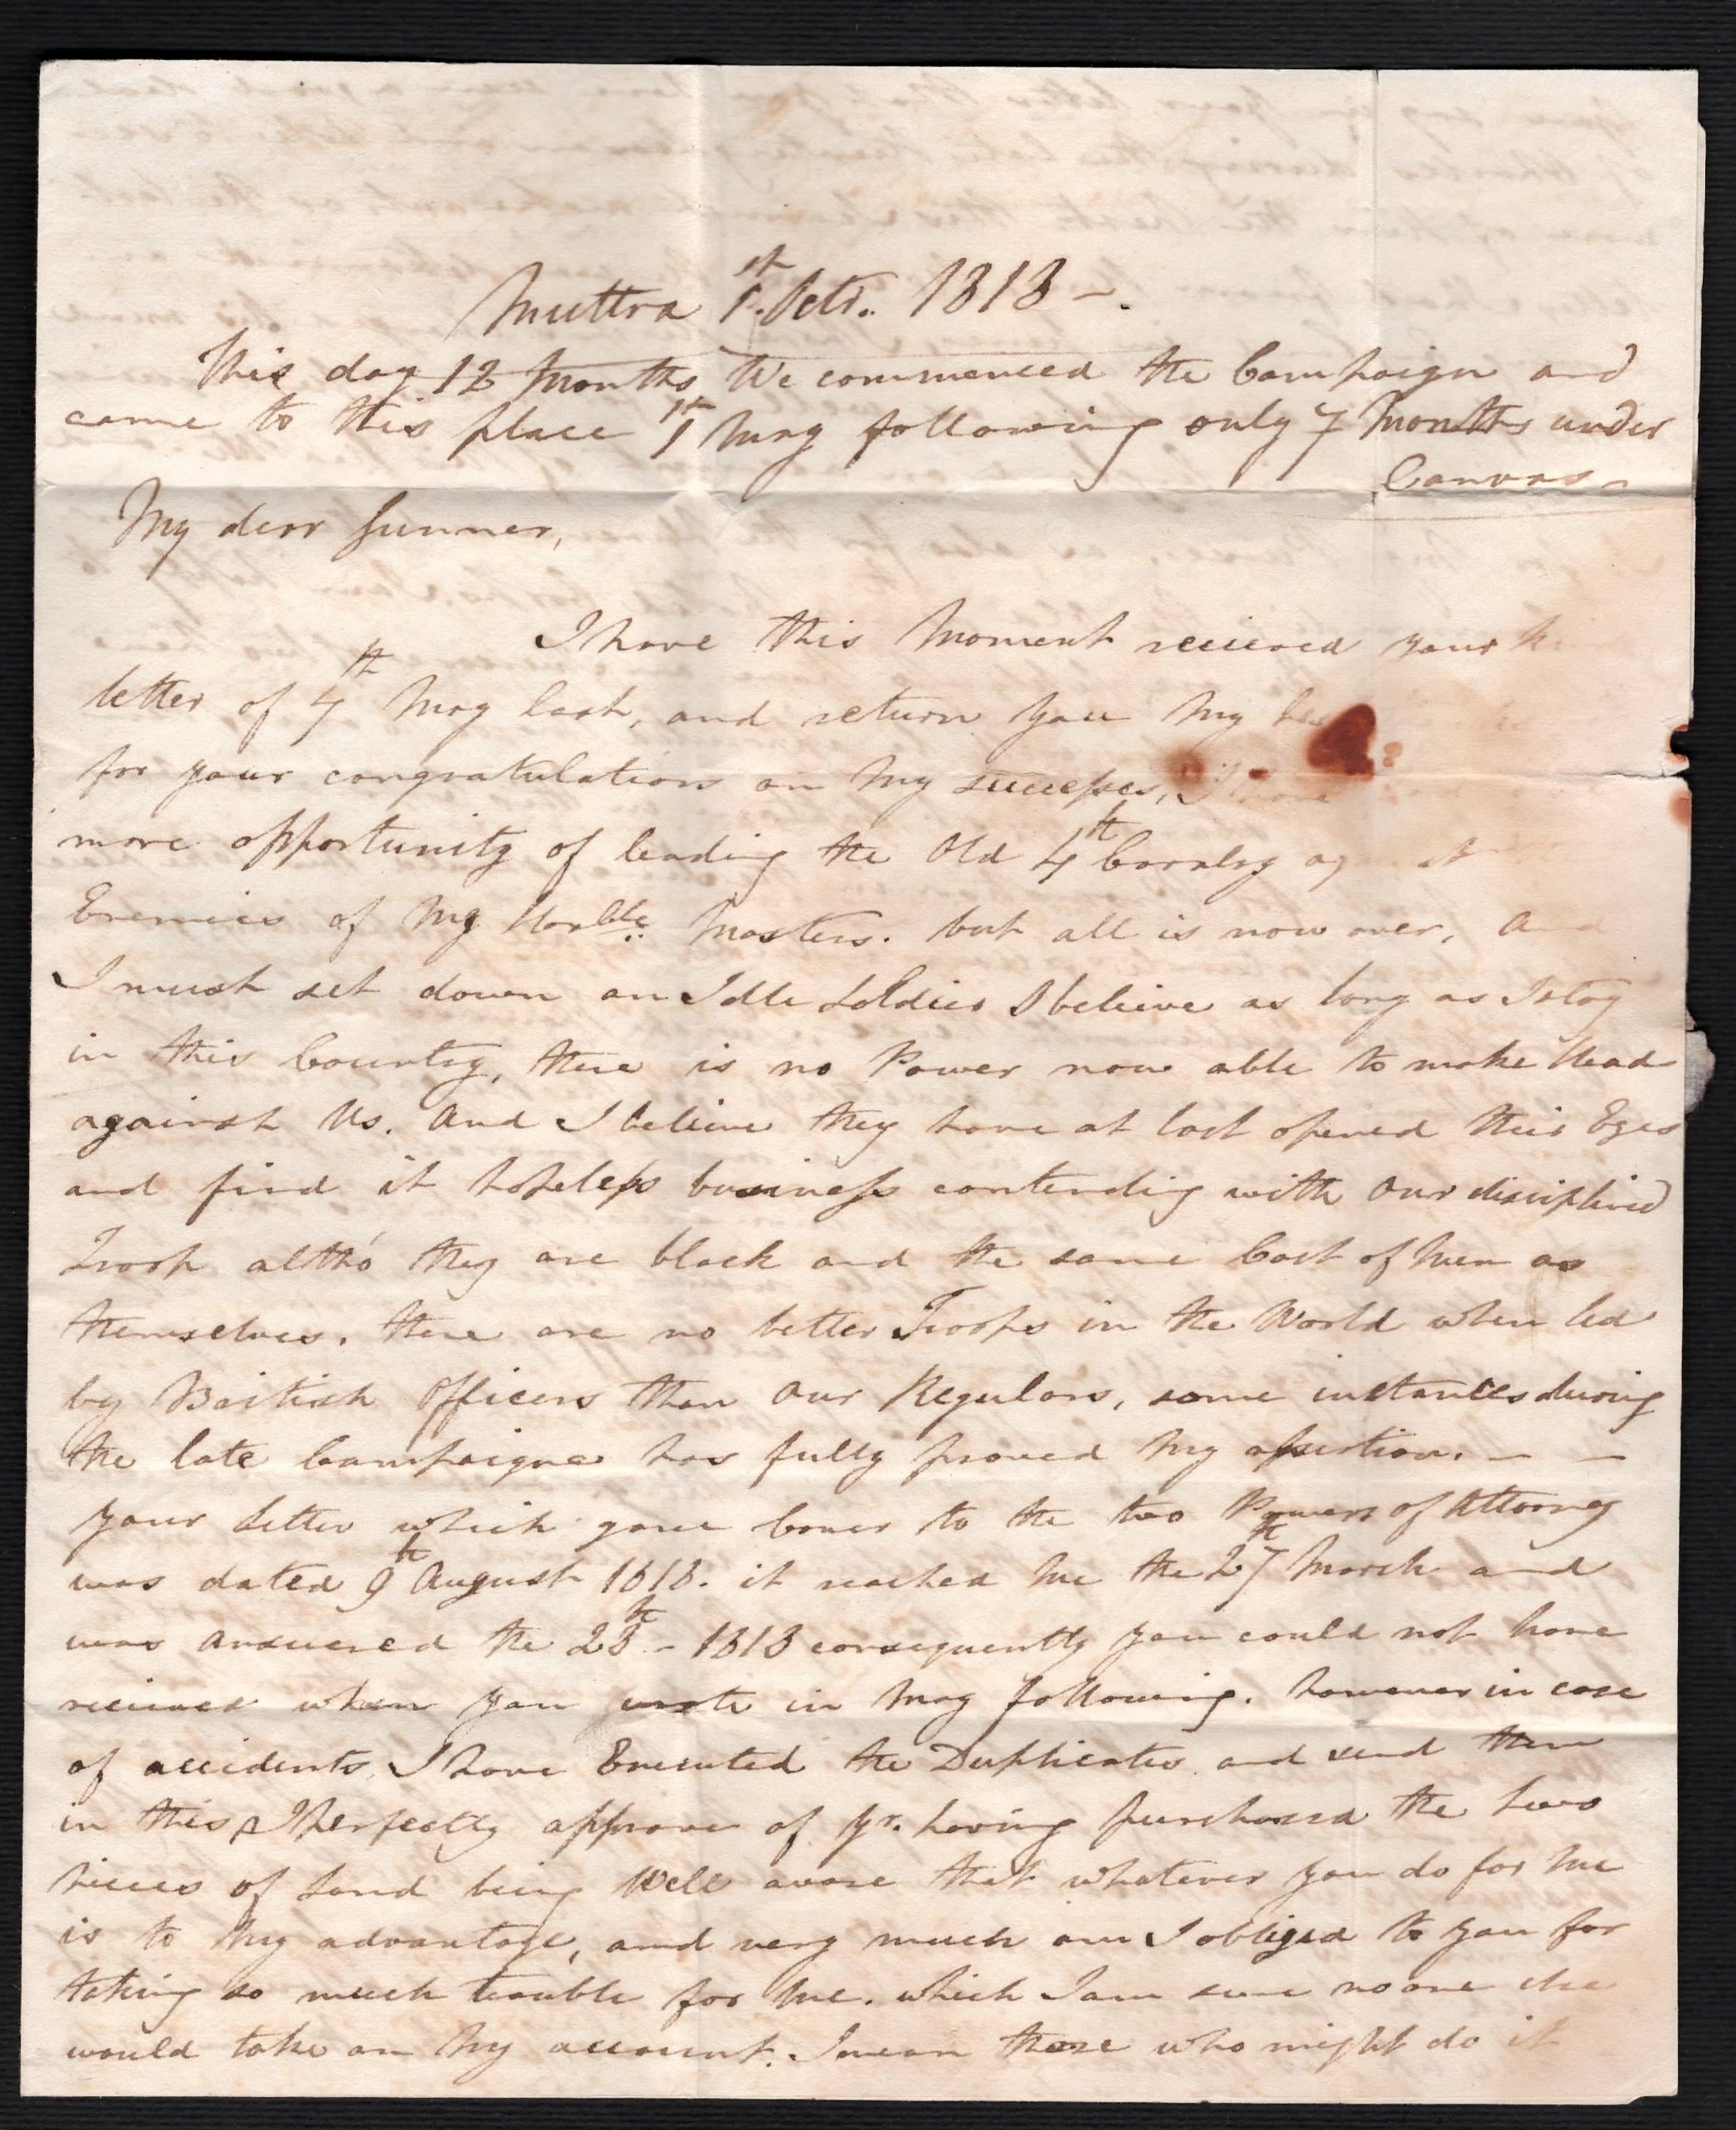 Muttra 1st. Octr. 1818 -.
This day 12 Months We commenced the Campaign and
came to this place 1st May following only 7 Months under
Canvas -
My dear Sumner,
I have this Moment recieved your
letter of 4th May last, and return you My
for your congratulations on My successes,
more opportunity of leading the Old 4th Cavalry
Enemies of My Honble. Masters. but all is now over, and
I must set down an Idle Soldier I believe as long as I stay
in this Country, there is no Power now able to make Head
against Us. And I believe they have at last opened their Eyes
and find it hopeless business contending with Our disciplined
Troop altho' they are black and the same Cast of Men as
themselves. there are no better Troops in the World when led
by British Officers than Our Regulars, some instances during
the late Campaigne has fully proved My assertion. - -
your Letter which gave Cover to the two Powers of Attorney
was dated 9th August 1818. it reached Me the 27th March and
was answered the 28th - 1818 consequently you could not have
recieved when you wrote in May following. however in case
of accidents I have Executed the Duplicates and send them
in this I Perfectly approve of yr. having purchased the two
Pieces of Land being Well aware that whatever you do for Me
is to My advantage, and very much am I obliged to you for
taking so much trouble for Me. which I am sure no one else
would take on My account. I mean those who might do it